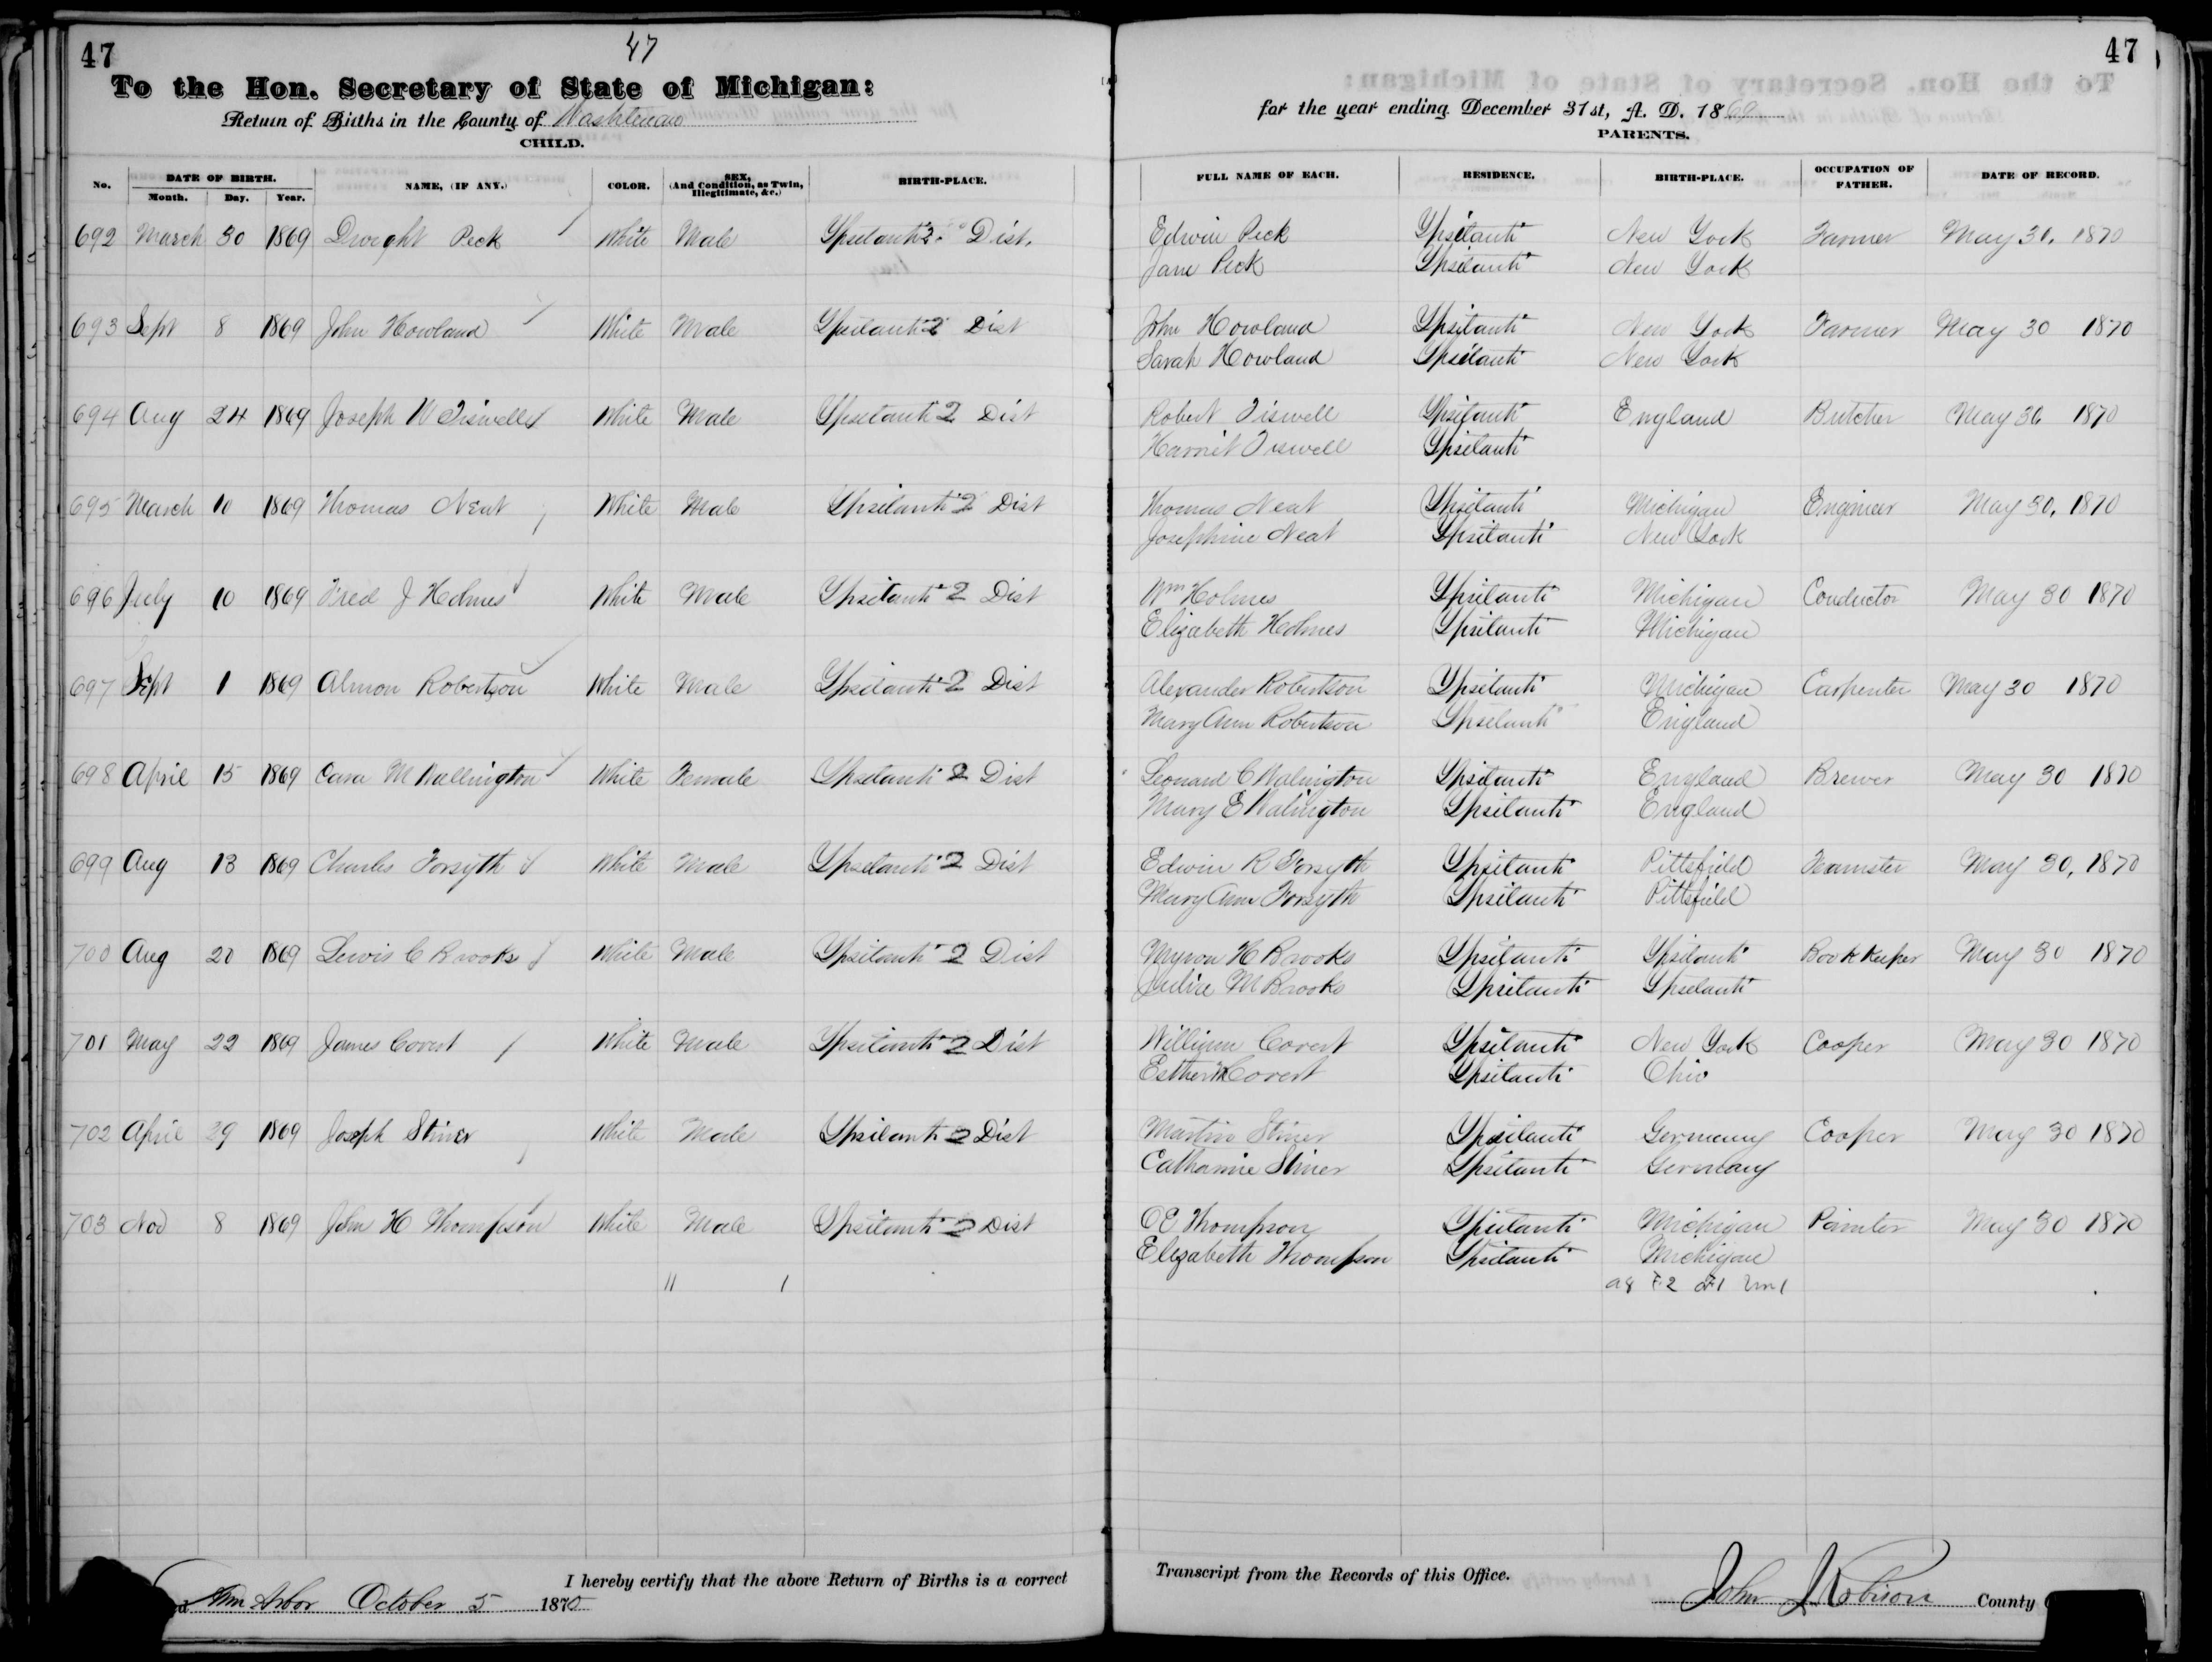 47 47
To the Hon. Secretary of State of Michigan:
Return of Births in the County of Washtenaw
CHILD.
No. DATE OF BIRTH. NAME, (IF ANY.) COLOR. SEX, (And Condition, as Twin, Illegitimate, &c.) BIRTH-PLACE.
Month. Day. Year.
692 March 30 1869 Dwight Peck White Male Ypsilanti 2 Dist.
693 Sept 8 1869 John Howland White Male Ypsilanti 2 Dist
694 Aug 24 1869 Joseph W Tiswell White Male Ypsilanti 2 Dist
695 March 10 1869 Thomas Neat White Male Ypsilanti 2 Dist
696 July 10 1869 Fred J Holmes White Male Ypsilanti 2 Dist
697 Sept 1 1869 Almon Robertson White Male Ypsilanti 2 Dist
698 April 15 1869 Cara M Wallington White Female Ypsilanti 2 Dist
699 Aug 13 1869 Charles Forsyth White Male Ypsilanti 2 Dist
700 Aug 20 1869 Lewis C Brooks White Male Ypsilanti 2 Dist
701 May 22 1869 James Covert White Male Ypsilanti 2 Dist
702 April 29 1869 Joseph Stiner White Male Ypsilanti 2 Dist
703 Nov 8 1869 John H Thompson White Male Ypsilanti 2 Dist
11 1
I hereby certify that the above Return of Births is a correct
Ann Arbor October 5 1870
47
for the year ending December 31st, A. D. 1869
PARENTS.
FULL NAME OF EACH. RESIDENCE. BIRTH-PLACE. OCCUPATION OF FATHER. DATE OF RECORD.
Edwin Peck Ypsilanti New York Farmer May 30, 1870
Jane Peck Ypsilanti New York
John Howland Ypsilanti New York Farmer May 30 1870
Sarah Howland Ypsilanti New York
Robert Tiswell Ypsilanti England Butcher May 30 1870
Harriet Tiswell Ypsilanti
Thomas Neat Ypsilanti Michigan Engineer May 30, 1870
Josephine Neat Ypsilanti New York
Wm Holmes Ypsilanti Michigan Conductor May 30 1870
Elizabeth Holmes Ypsilanti Michigan
Alexander Robertson Ypsilanti Michigan Carpenter May 30 1870
Mary Ann Robertson Ypsilanti England
Leonard C Walington Ypsilanti England Brewer May 30 1870
Mary E Walington Ypsilanti England
Edwin R Forsyth Ypsilanti Pittsfield Teamster May 30, 1870
Mary Ann Forsyth Ypsilanti Pittsfield
Myron H Brooks Ypsilanti Ypsilanti Book Keeper May 30 1870
M Brooks Ypsilanti Ypsilanti
William Covert Ypsilanti New York Cooper May 30 1870
Esther Covert Ypsilanti Ohio
Martin Stiner Ypsilanti Germany Cooper May 30 1870
Catharine Stiner Ypsilanti Germany
O E Thompson Ypsilanti Michigan Painter May 30 1870
Elizabeth Thompson Ypsilanti Michigan
a8 F2
Transcript from the Records of this Office.
John J Robison County